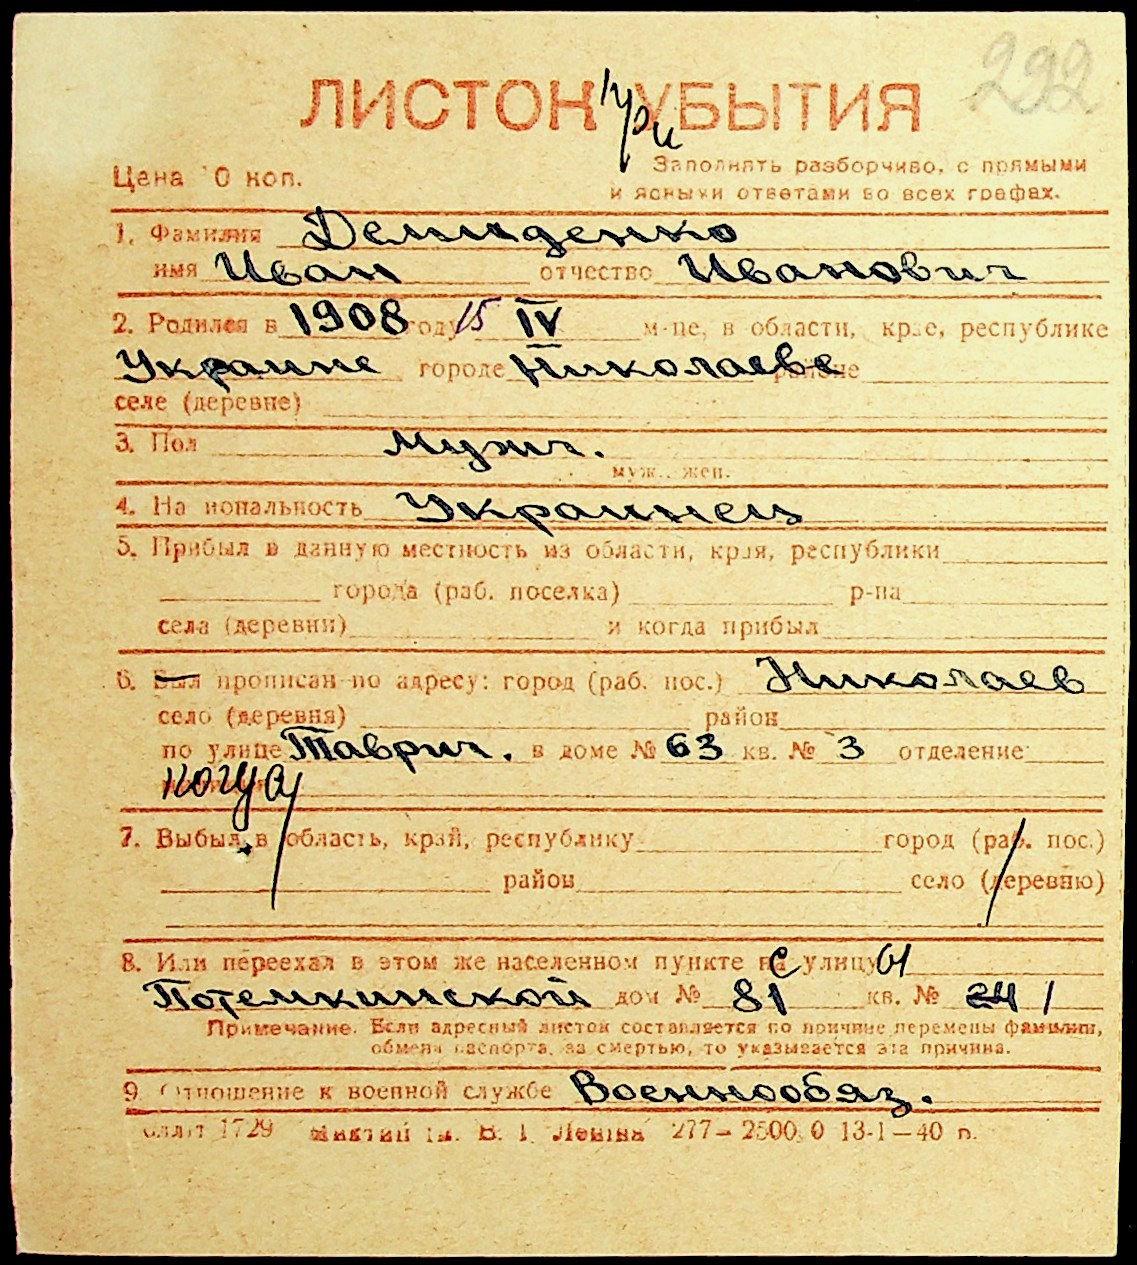 292
ЛИСТОК УБЫТИЯ
при
Цена 10 коп.
Заполнять разборчиво, с прямыми
и ясными ответами во всех графах.
1. Фамилия Демиденко
имя Иван отчество Иванович
2. Родился в 1908 году 15 IV м-це, в области, крае, республике
Украине городе Николаеве районе
селе (деревне)
3. Пол Мужч.
муж., жен.
4. Национальность Украинец
5. Прибыл в данную местность из области, края, республики
города (раб. поселка) р-на
села (деревни) и когда прибыл
6. Был прописан по адресу: город (раб. пос.) Николаев
село (деревня) район
по улице Таврич. в доме № 63 кв. № 3 отделение
7. Выбыл в область, край, республику город (раб. пос.)
район село (деревню)
8. Или переехал в этом же населенном пункте на с улицу ы
Потемкинской дом № 81 кв. № 24 1
Примечание. Если адресный листок составляется по причине перемены фамилии,
обмена паспорта, за смертью, то указывается эта причина.
9. Отношение к военной службе Военнообяз.
1729 им. В. І. Леніна 277— 13-1—40 п.